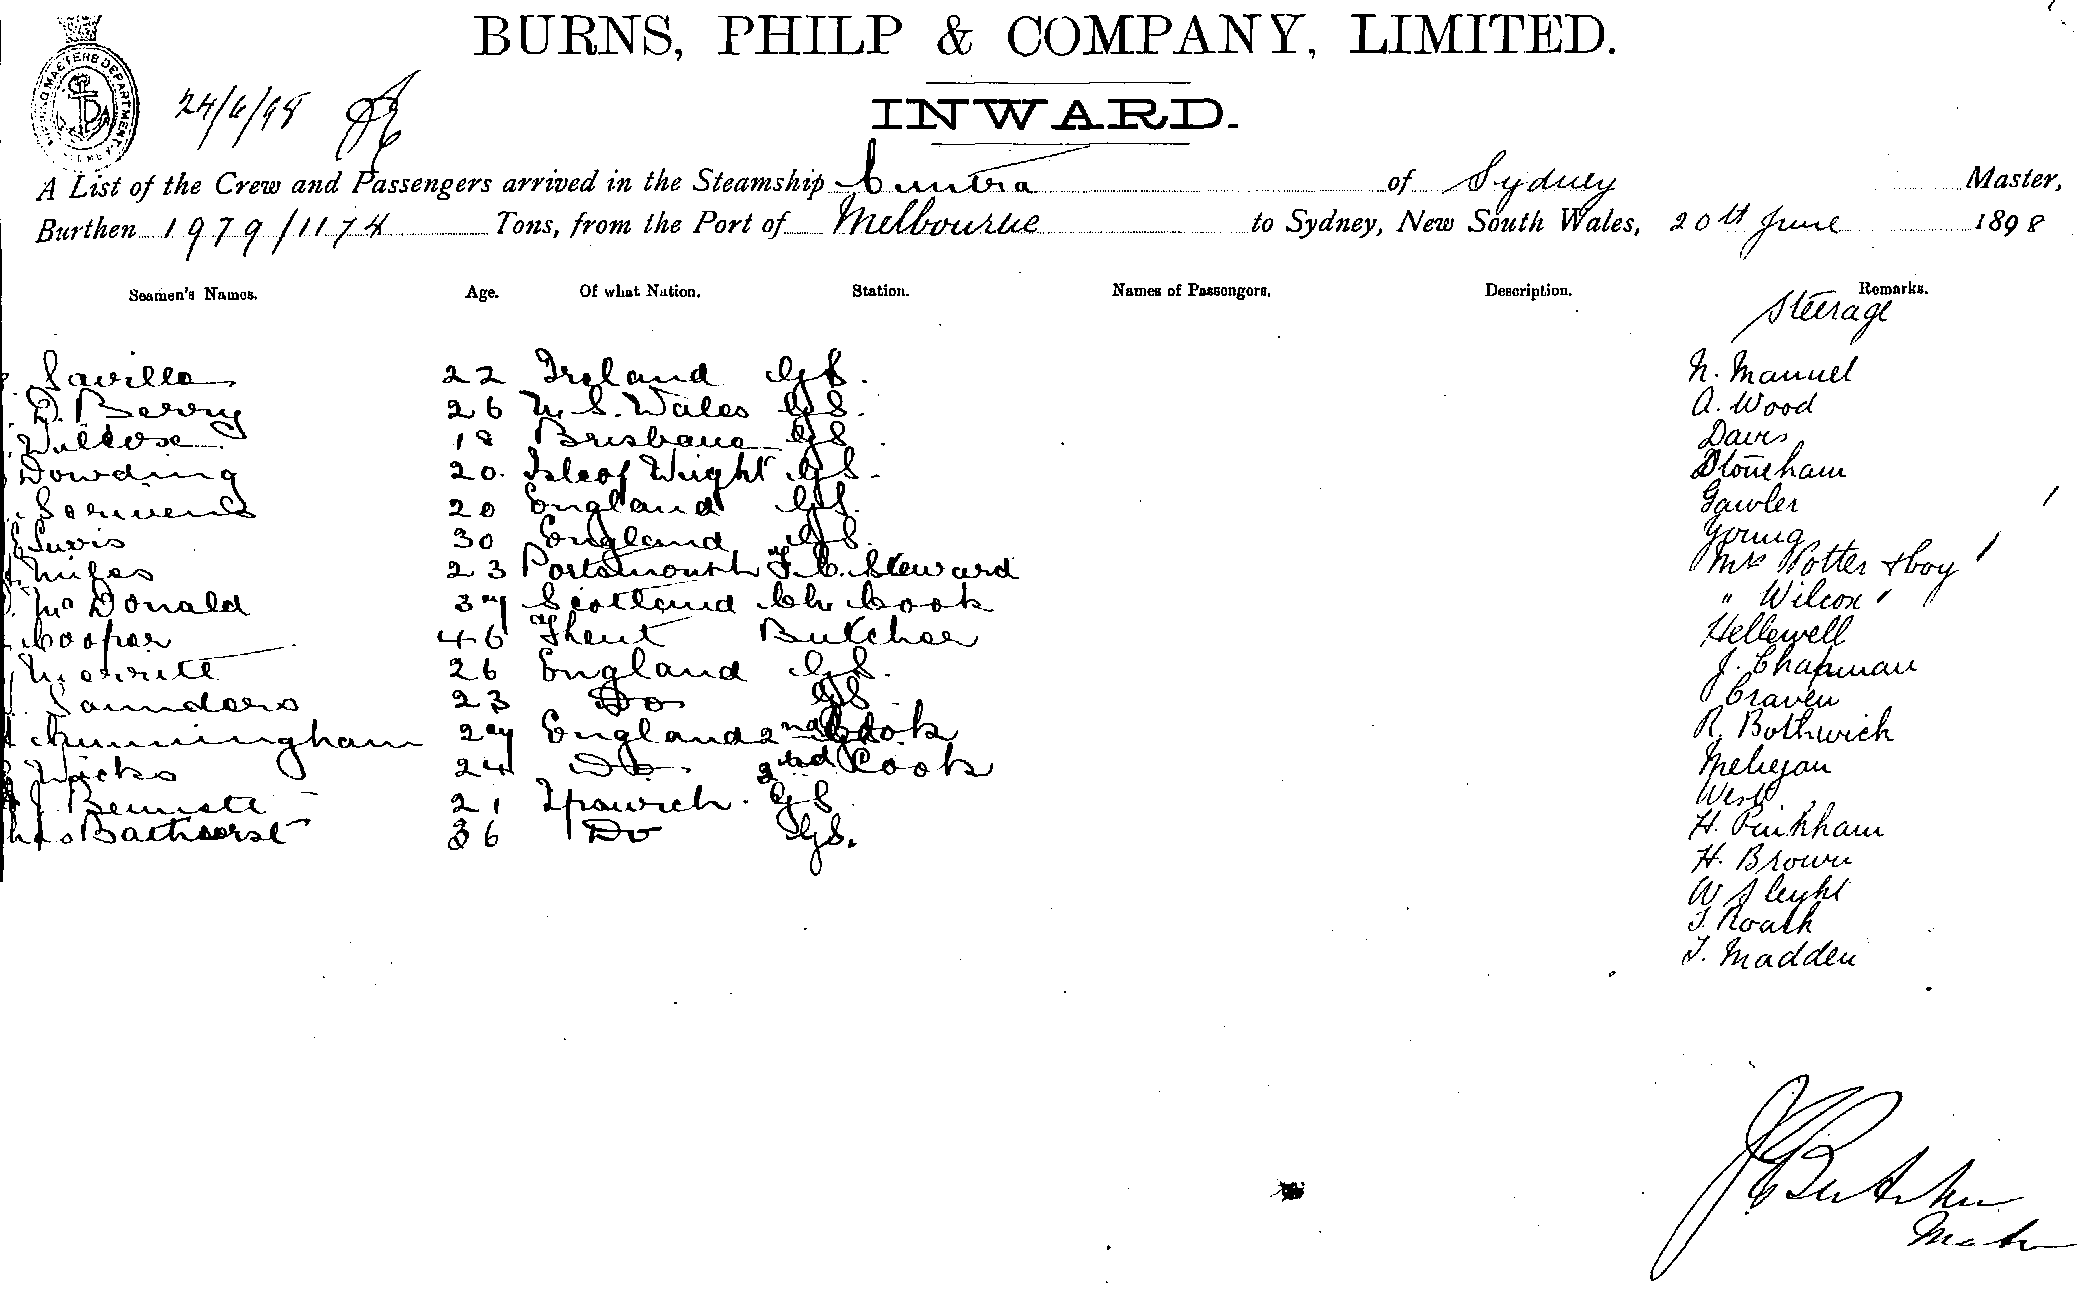 BURNS, PHILP & COMPANY, LIMITED.
24/6/98
INWARD.
A List of the Crew and Passengers arrived in the Steamship Cintra of Sydney Master,
Burthen 1979/1174 Tons, from the Port of Melbourne to Sydney, New South Wales, 20th June 1898
Seamen's Names. Age. Of what Nation. Station. Names of Passengers. Description. Remarks.
Steerage
Saville 22 Ireland GS. N. Manuel
D. Berry 26 N. S. Wales GS. A. Wood
18 Brisbane GS Davis
Dowding 20. Isle of Wight GS. Stoneham
Scrivens 20 England GS. Gawler
30 England GS. Young
Miles 23 Portsmouth F. C. Steward Mrs Potter & boy
McDonald 37 Scotland Ch Cook " Wilcox
Cooper 46 Butcher Hellewell
Merritt 26 England GS. J. Chapman
Saunders 23 Do GS Craven
Cunningham 27 England 2nd Cook R. Bothwick
Hicks 24 Do. Cook Mehegan
J Bennett 21 Ipswich. GS West
Bathurst 36 Do GS. H. Pinkham
H. Brown
W Sleight
T. Roach
T. Madden
J Butcher